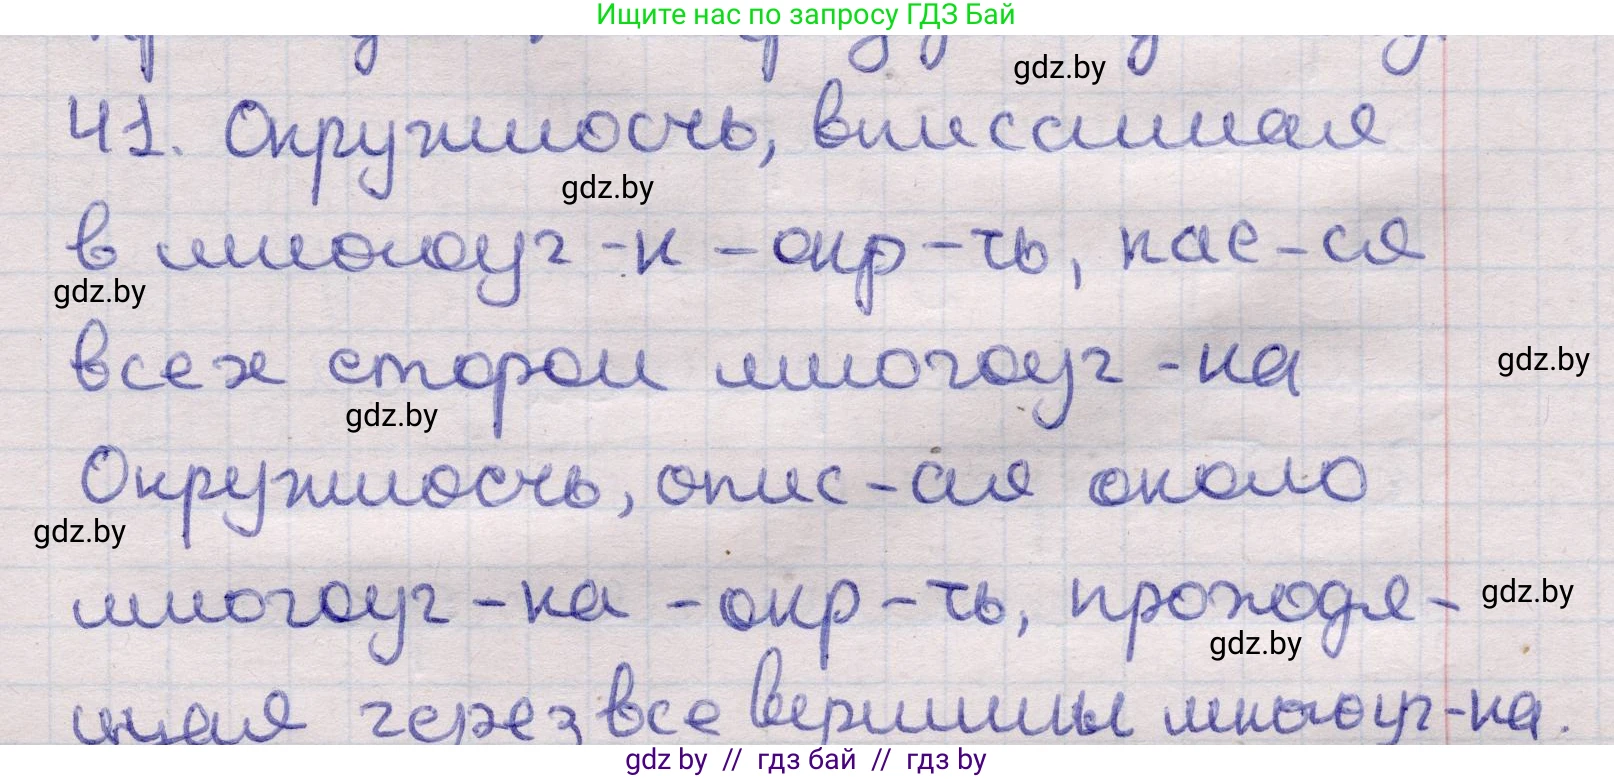 Ищите нас по запросу ГДЗ Бай
gdz.by
41. Окружность, вписанная
gdz.by
в многоуг-к - окр-ть, кае-ся
gdz.by
всех сторон многоуг-ка
gdz.by
gdz.by
Окружность, опис-ая около
gdz.by
многоуг-ка - окр-ть, проходя-
gdz.by
gdz.by
щая через все вершины многоуг-ка.
gdz.by // гдз бай // гдз by